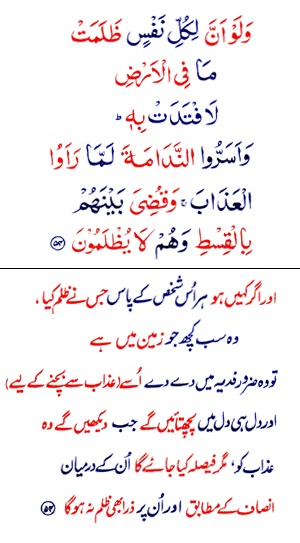 وَلَوْ اَنَّ لِكُلِّ نَفْسٍ ظَلَمَتْ
مَا فِى الْاَرْضِ
لَافْتَدَتْ بِهٖ ؕ
وَاَسَرُّوا النَّدَامَةَ لَمَّا رَاَوُا
الْعَذَابَ ۚ وَقُضِىَ بَيْنَهُمْ
بِالْقِسْطِ وَهُمْ لَا يُظْلَمُوْنَ ۝۵۴
اور اگر کہیں ہو ہر اُس شخص کے پاس جس نے ظلم کیا،
وہ سب کچھ جو زمین میں ہے
تو وہ ضرور فدیہ میں دے دے اُسے (عذاب سے بچنے کے لیے)
اور دل ہی دل میں پچھتائیں گے جب دیکھیں گے وہ
عذاب کو، مگر فیصلہ کیا جائے گا اُن کے درمیان
انصاف کے مطابق اور اُن پر ذرا بھی ظلم نہ ہوگا ۝۵۴